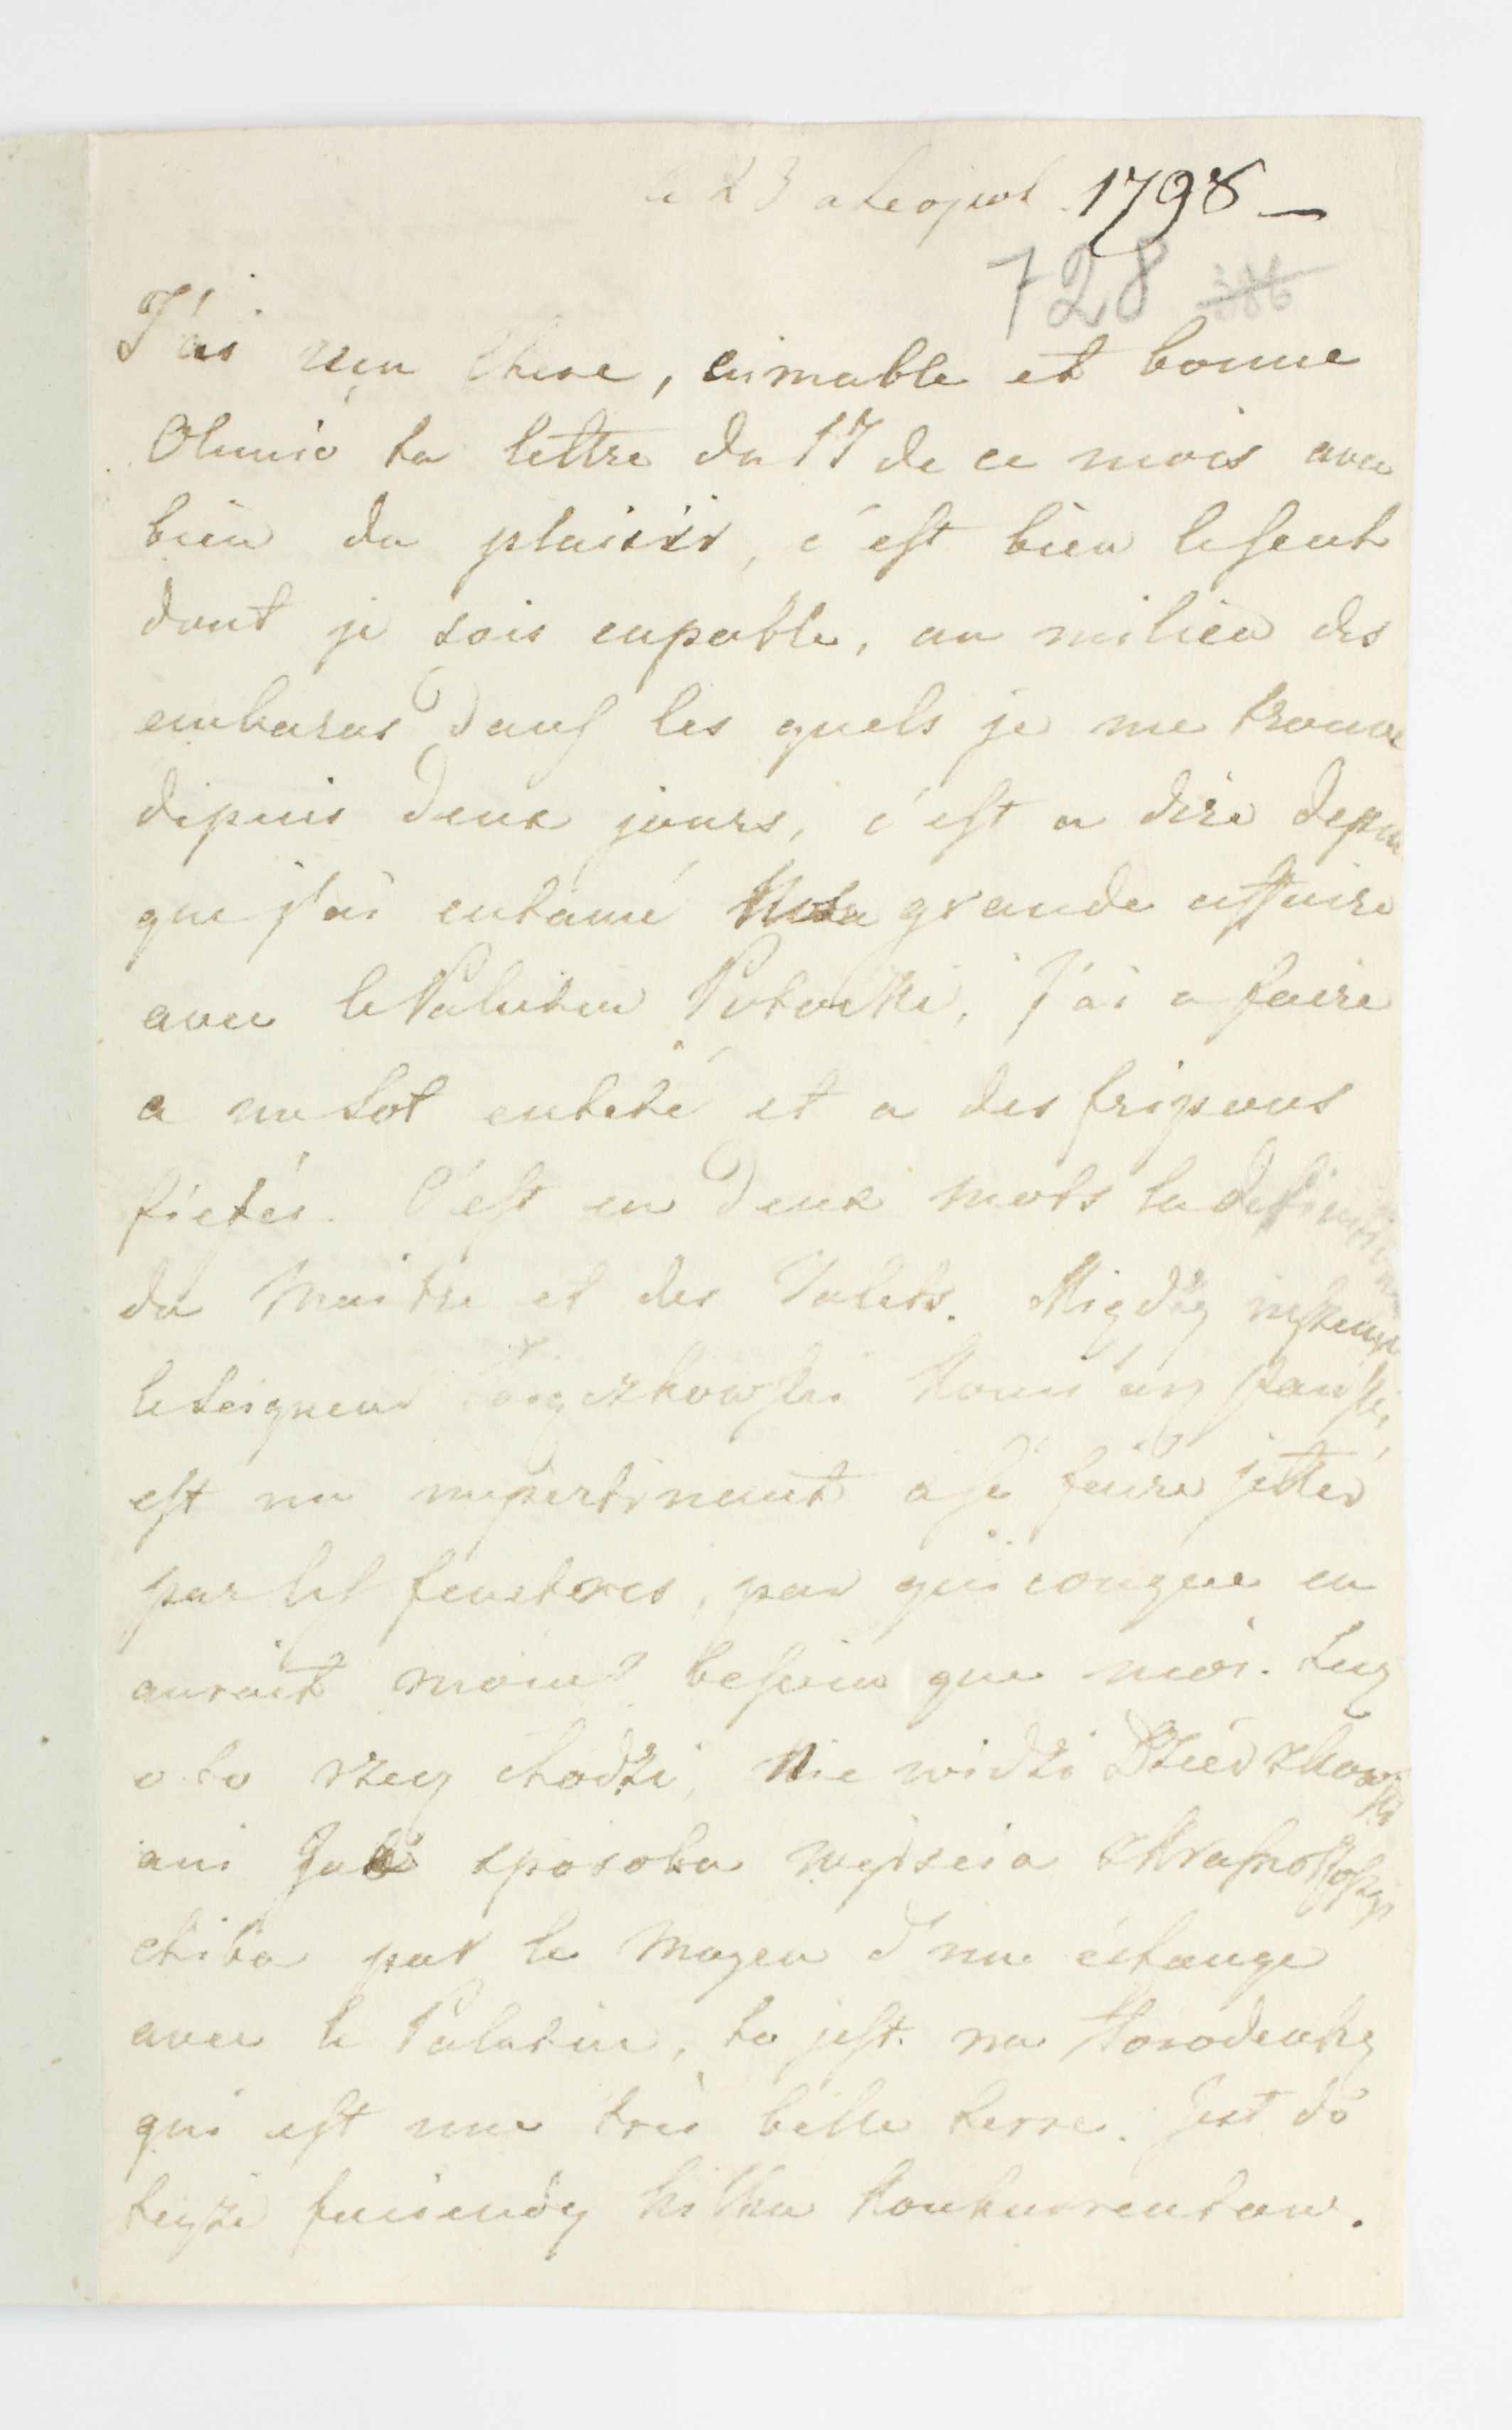 le 23 a Leopol 1798 —
728 386
J'ai reçu Chere, aimable et bonne
Olunió ta lettre du 17 de ce mois avec
bien du plaisir, c'est bien le seul
dont je sois capable, au milieu des
embaras dans les quels je me trouve
dipuis deux jours, c'est a dire depuis
que j'ai entamé grande affaire
avec le Palatin Potocki, J'ai a faire
a un sot enteté et a des fripons
fiefés. C'est en deux mots la definition
du Maitre et des Valets. Między
le Seigneur
est un impertinent a se faire jetter
par les fenetres, par quiconque en
auroit moins besoin que moi. Lecz
o to rzecz chodzi, Nie widzi Dzierzkowski
ani Ja sposobu wyiscia z Krasnostoszyc
chiba par le moyen d'un échange
avec le Palatin, to jest. na Horodenkę
qui est une très belle terre. Jest do
teyże kilka konkurrentow.